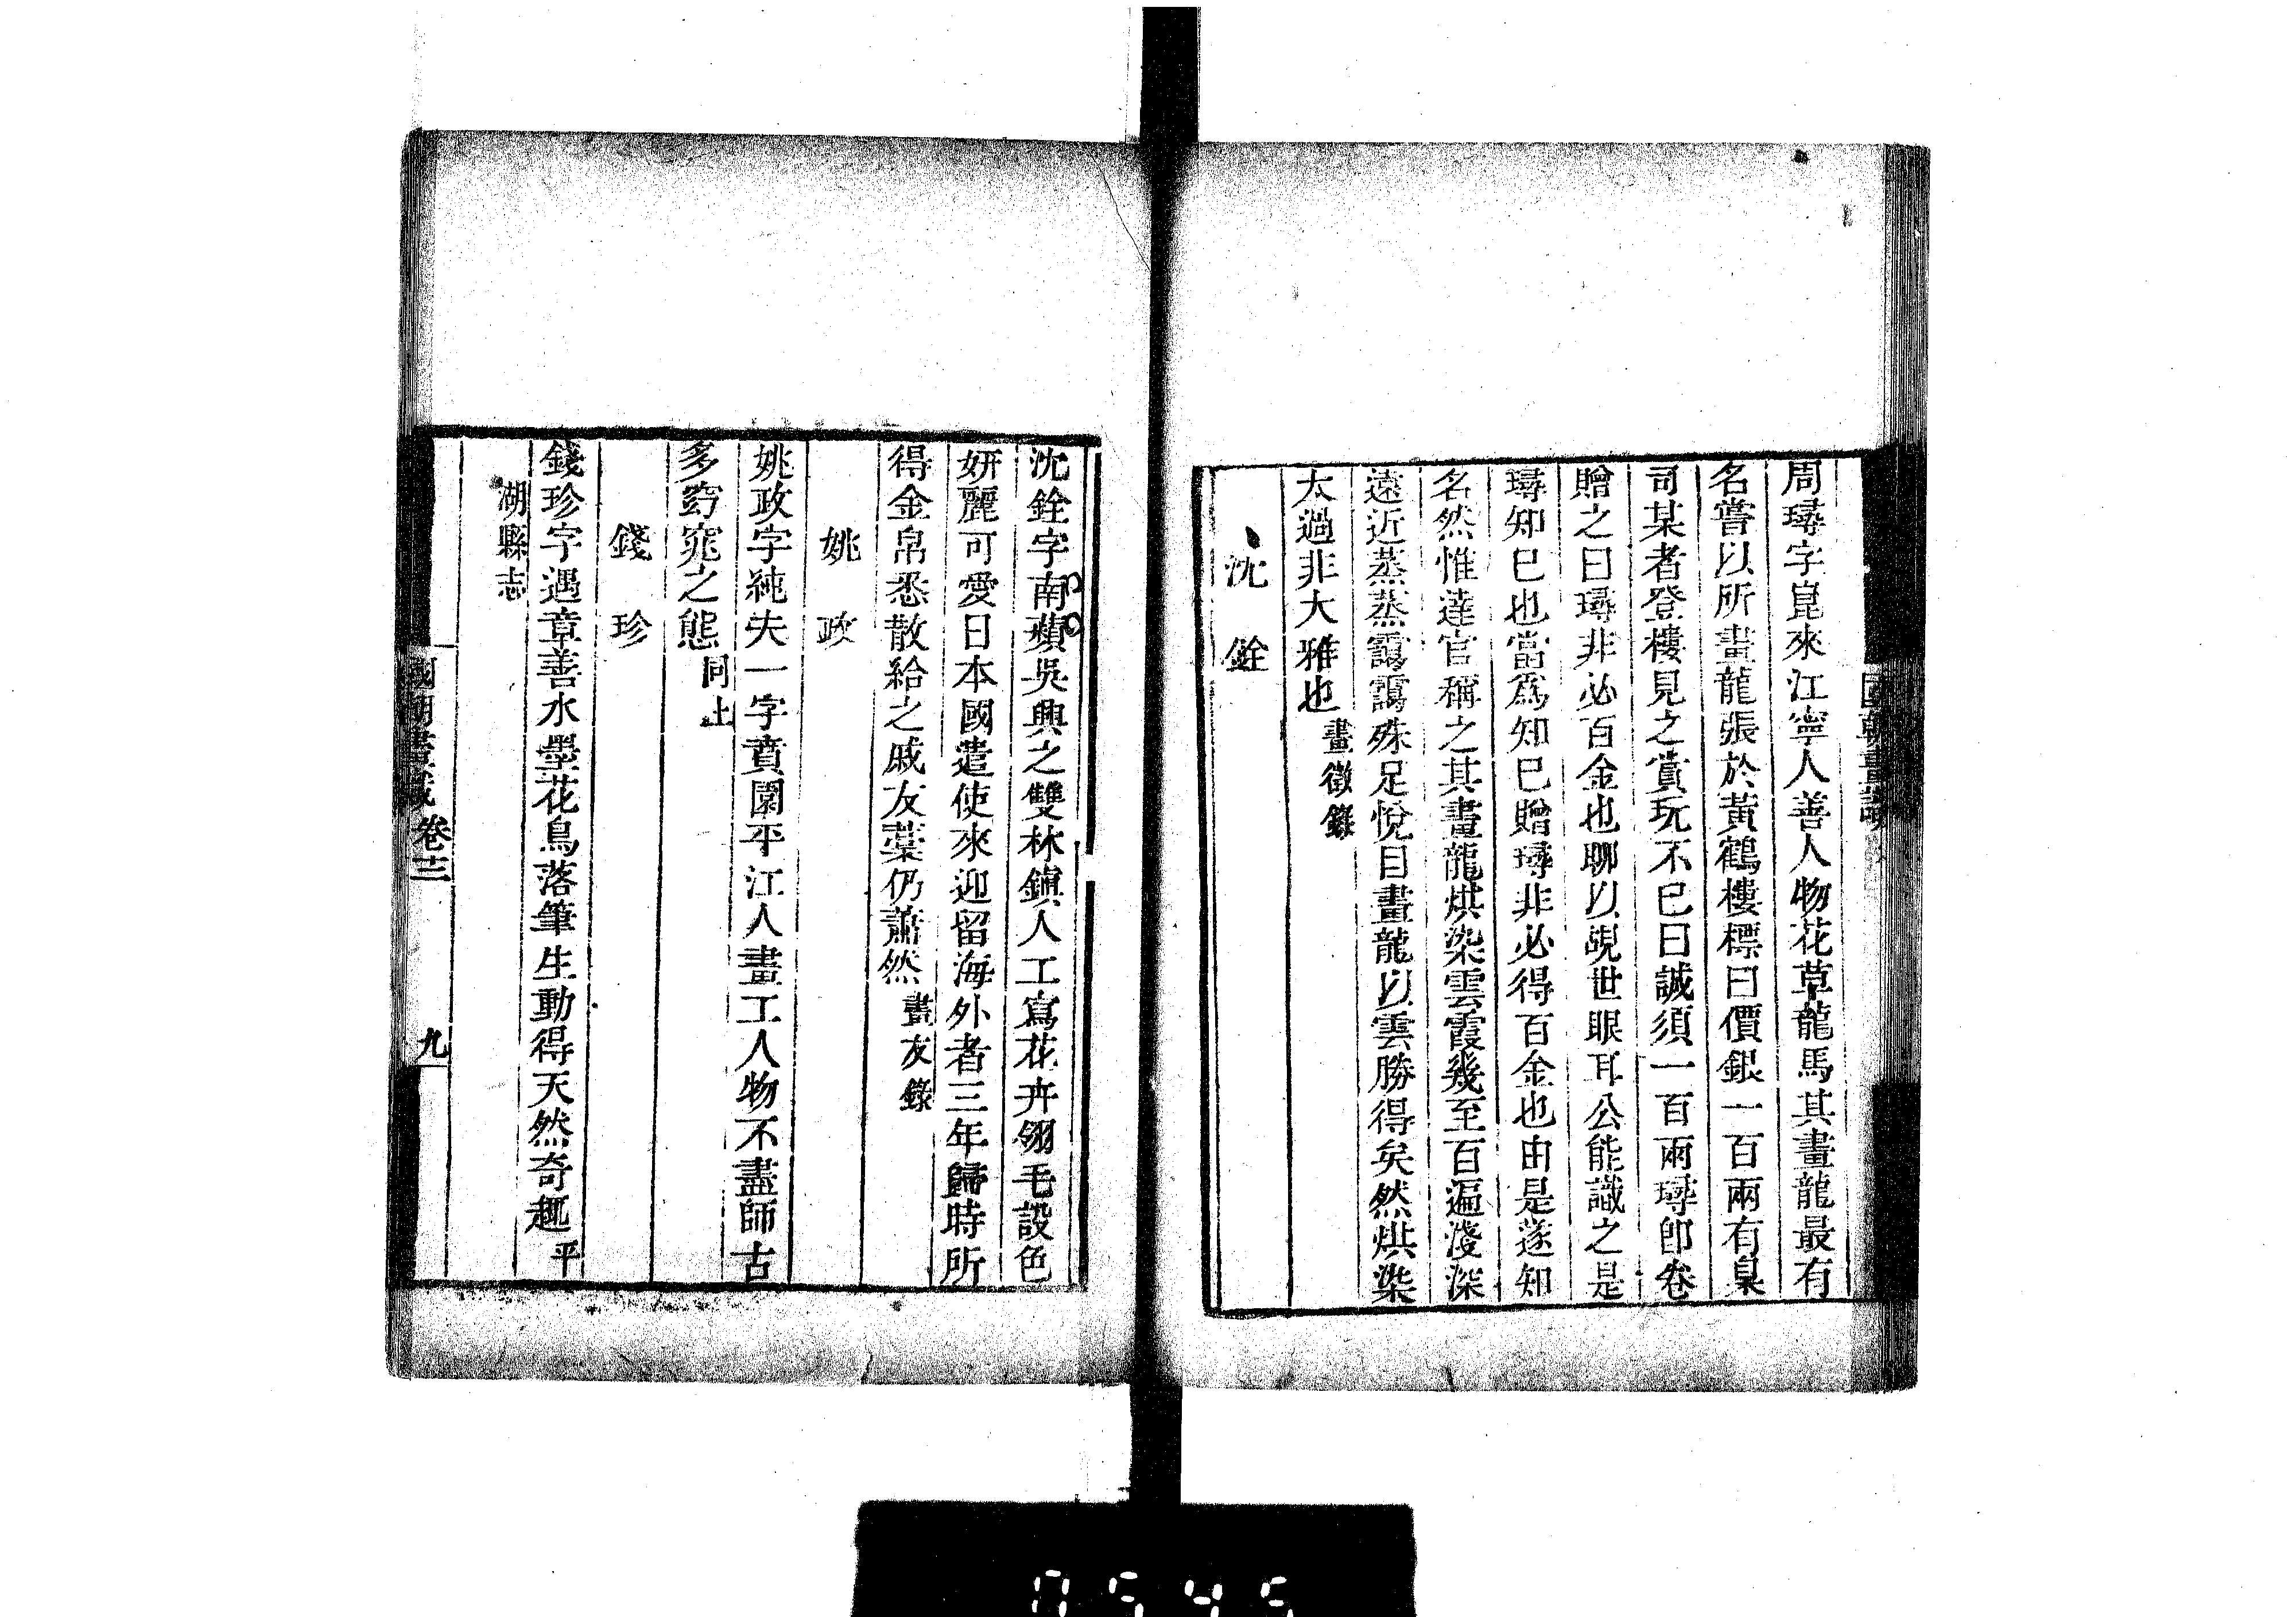 周璕字崑來江寧人善人物花草龍馬其畫龍最有
名嘗以所畫龍張於黃鶴樓標曰價銀一百兩有臬
司某者登樓見之賞玩不已曰誠須一百兩璕卽卷
贈之曰璕非必百金也聊以覘世眼耳公能識之是
璕知巳也當爲知巳贈璕非必得百金也由是遂知
名然惟達官稱之其畫龍烘染雲霞幾至百遍淺深
遠近蒸蒸靄靄殊足悅目畫龍以雲勝得矣然烘染
太過非大雅也畫徵錄
沈銓
沈銓字南蘋吳興之雙林鎭人工寫花卉翎毛設色
姸麗可愛日本國遣使來迎留海外者三年歸時所
得金帛悉散給之戚友藁仍蕭然畫友錄
姚政
姚政字純夫一字賁園平江人畫工人物不盡師古
多窈窕之態同上
錢珍
錢珍字遇章善水墨花鳥落筆生動得天然奇趣平
湖縣志
國朝畫識 卷十三 九
0545